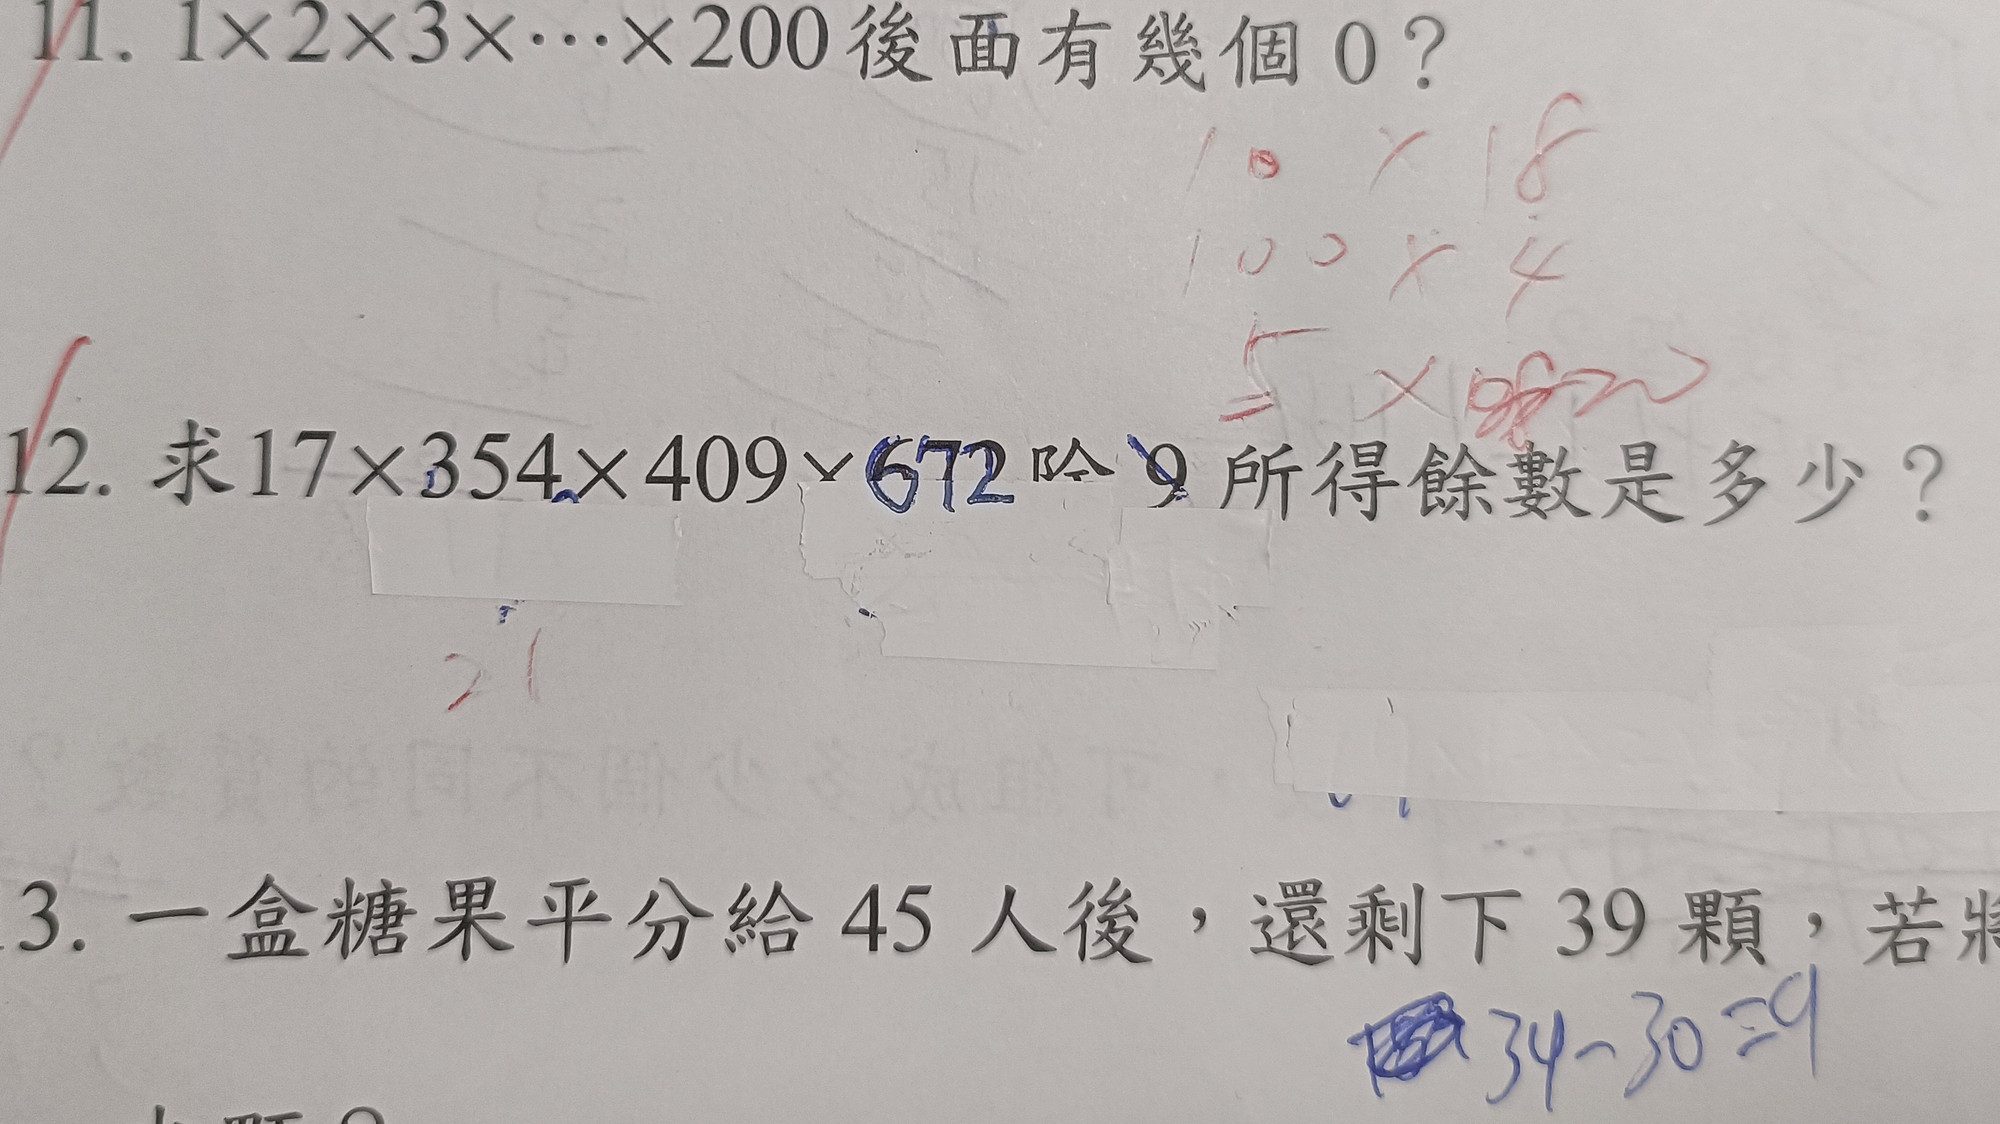 11. 1×2×3×…×200後面有幾個 0？
10 × 18
100 × 4
5 ×
12. 求17×354×409×672 除 9 所得餘數是多少？
21
3. 一盒糖果平分給 45 人後，還剩下 39 顆，若將
34-30=9